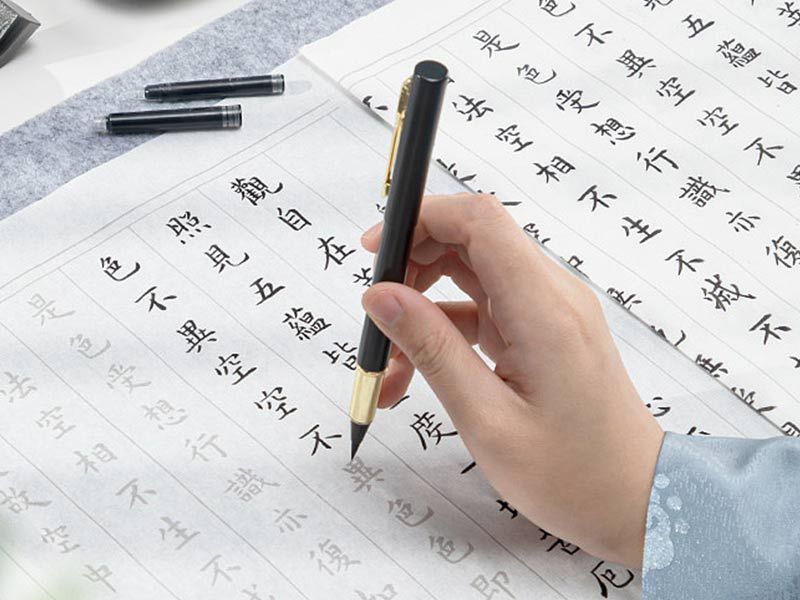 五蘊皆
色不異空空不
是色受想行識亦復
法空相不生不滅不
觀自在
照見五蘊皆度一
色不異空空不異色色即
是色受想行識亦復如
法空相不生不
故空中